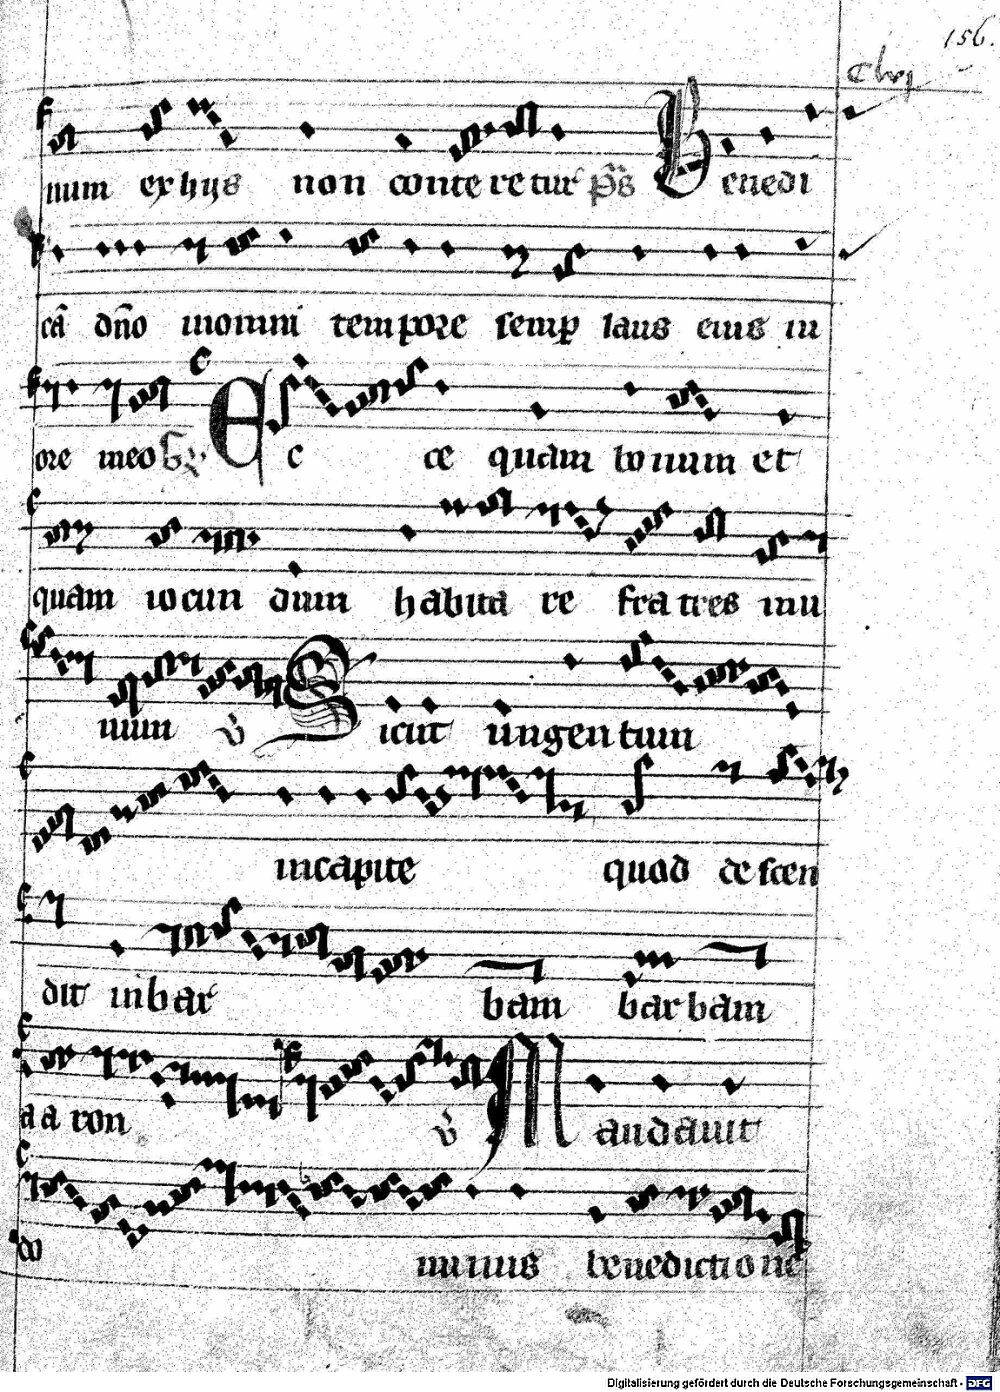 156.
num ex hijs non conteretur p̄s Benedi
cā dn̄o inomni tempore semp laus eius in
ore meo Ec ce quam bonum et
quam iocun dum habita re fratres inu
num v̇ Sicut ungentum
incapite quod descen
dit inbar bam barbam
aaron v̇ Mandauit
do minus benedictione
Digitalisierung gefördert durch die Deutsche Forschungsgemeinschaft - DFG